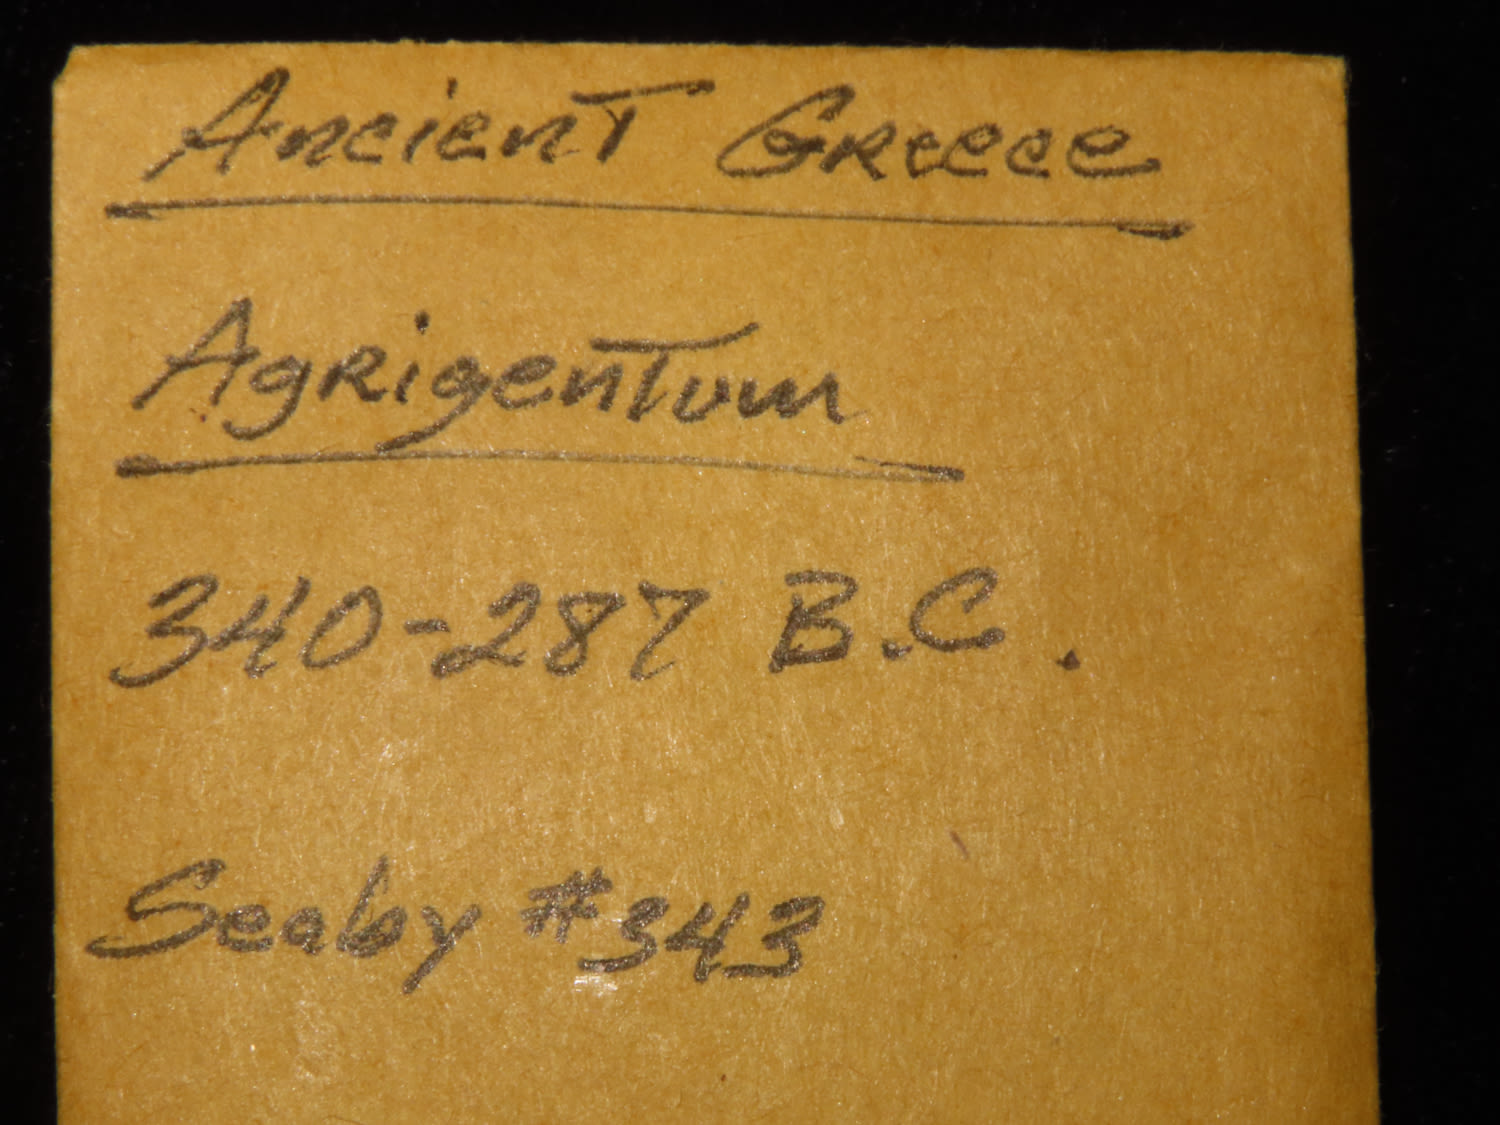 Ancient Greece
Agrigentum
340-287 B.C.
Seaby #343